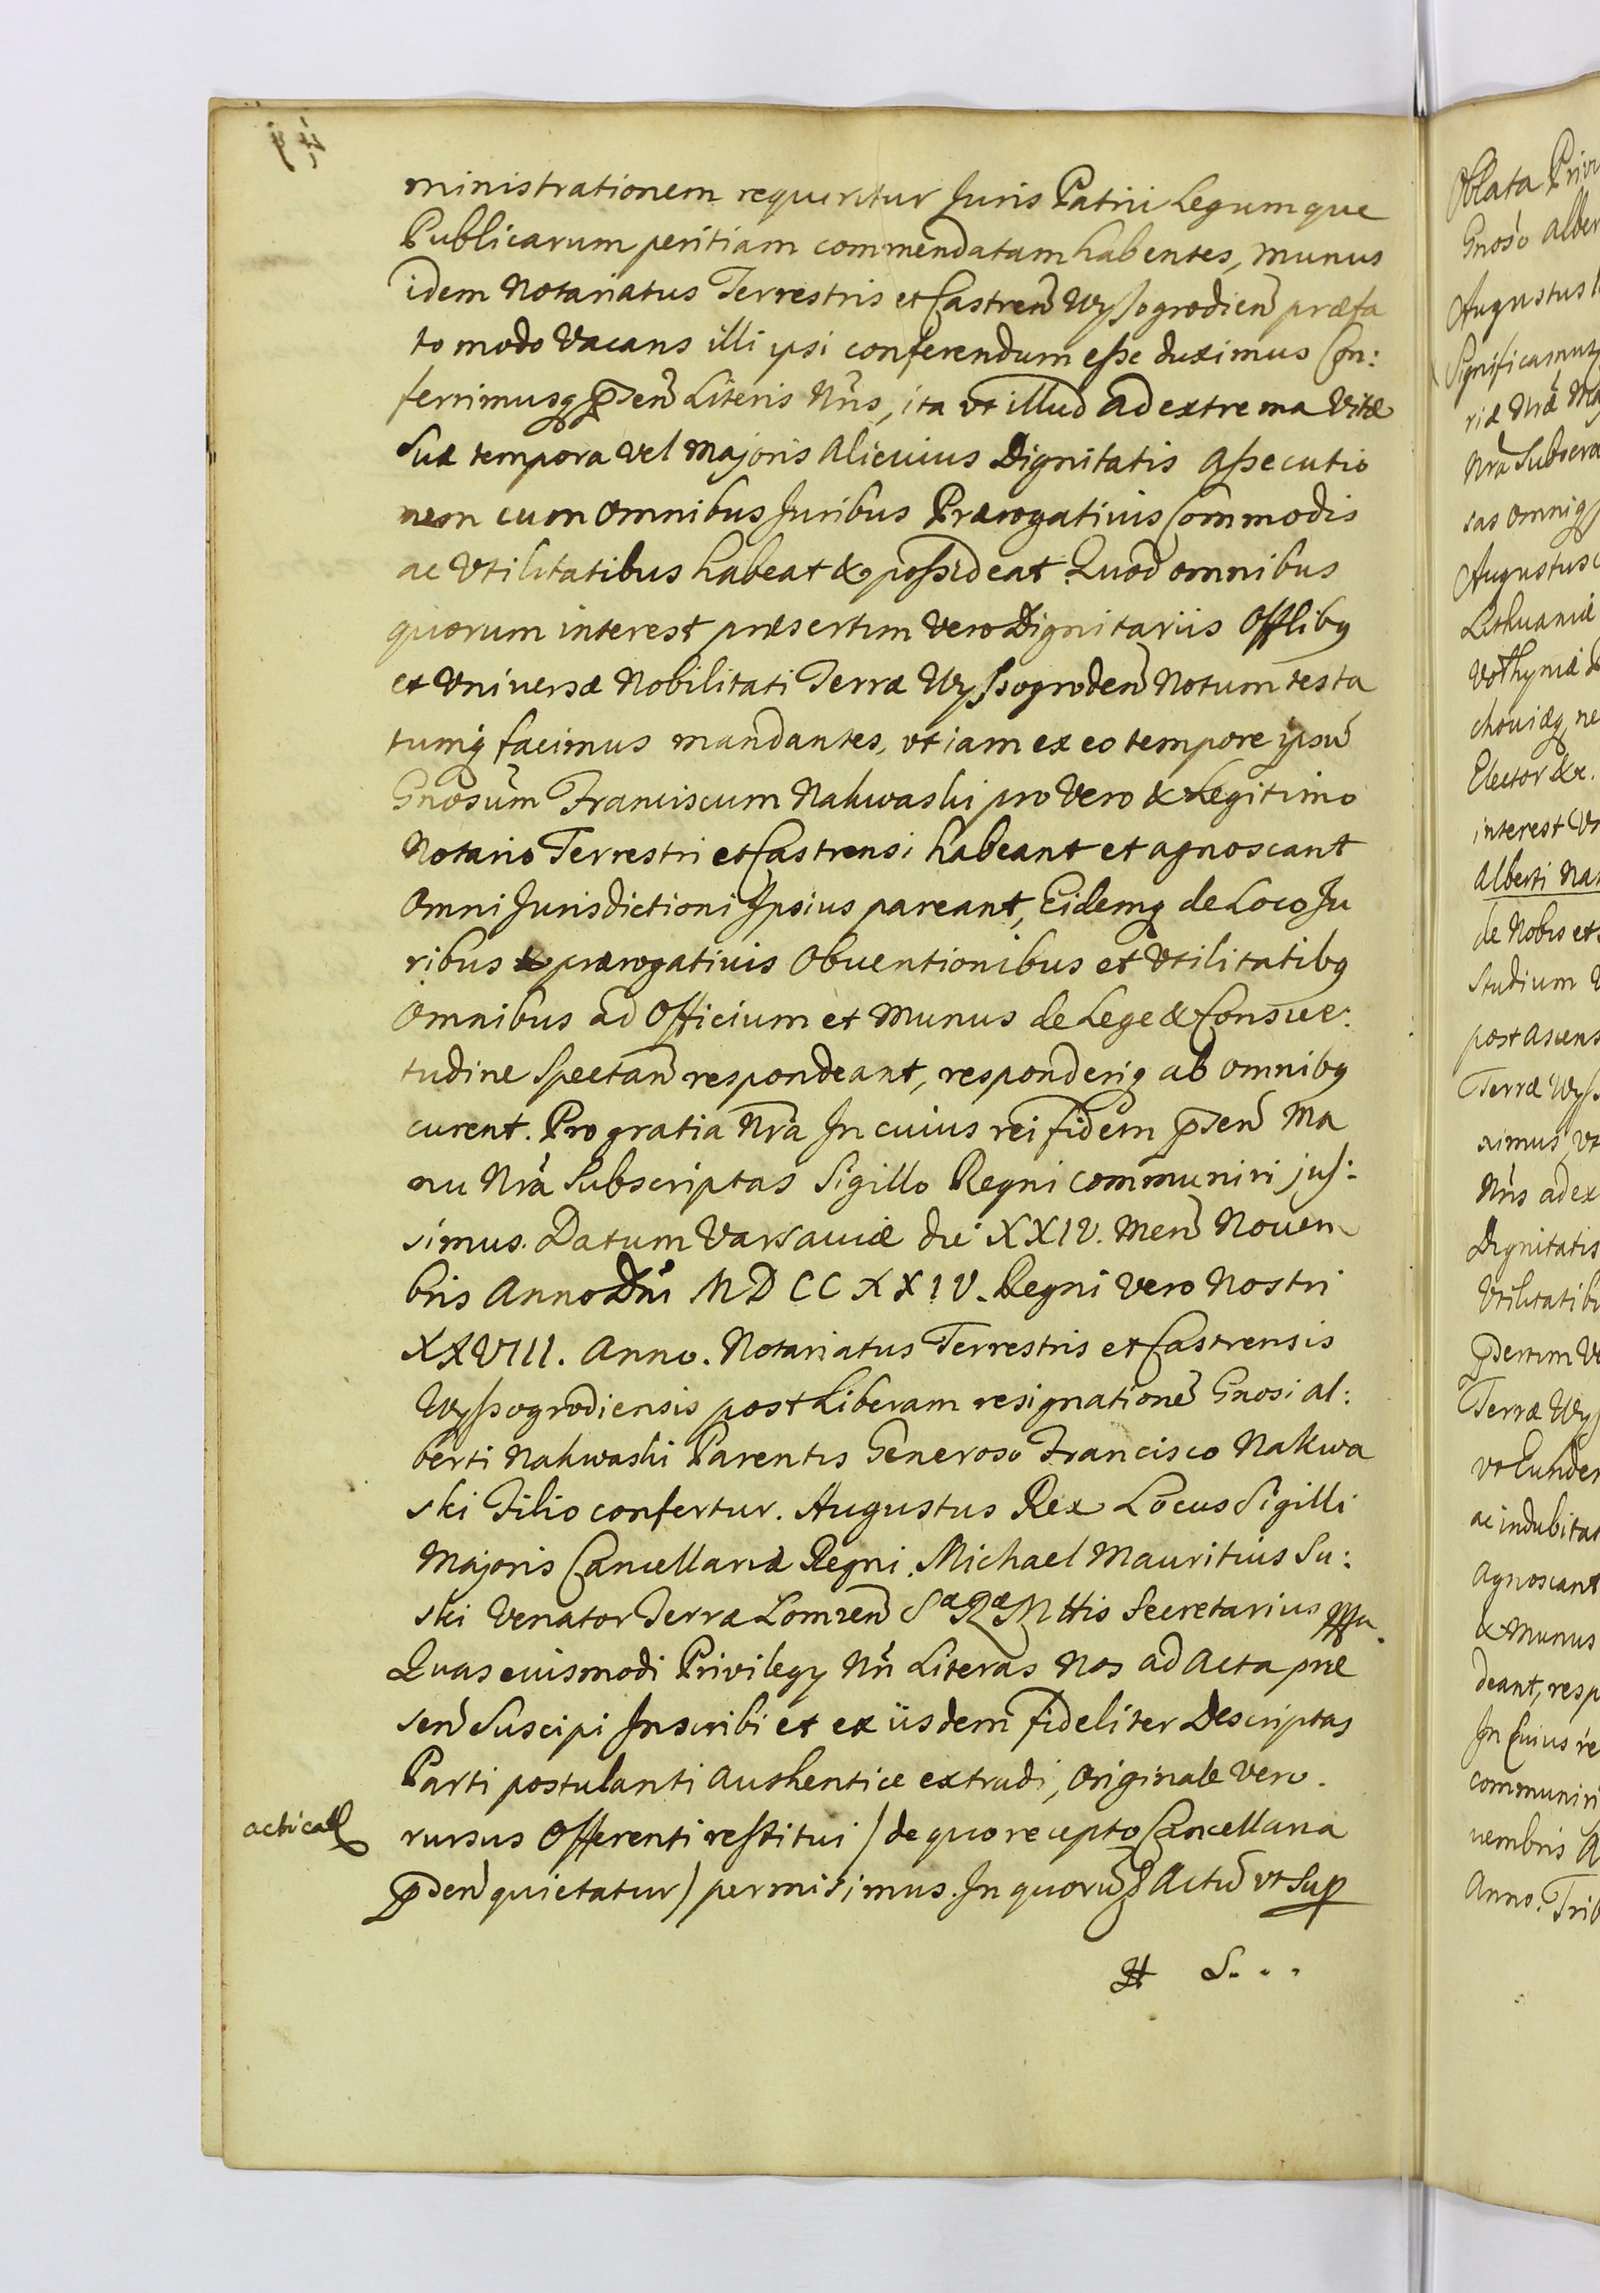 ministrationem requiritur Juris Patrii Legumque
Publicarum peritiam commendatam habentes, munus
idem Notariatus Terrestris et Castren Wyssogrodien præfa
to modo Vacans illi ipsi conferendum esse duximus Con:
ferrimusq pñsen Literis Nris, ita vt illud ad extrema Vitæ
Suæ tempora vel Majoris Alicuius Dignitatis Assecutio
nem cum Omnibus Juribus Prærogatiuis Commodis
ac Vtilitatibus habeat & possideat. Quod omnibus
quorum interest præsertim vero Dignitariis Offlibq
et Vniversæ Nobilitati Terræ Wyssogroden Notum testa
tumq facimus mandantes, vt iam ex eo tempore ipsũ
Gnosum Franciscum Nakwaski pro Vero & Legitimo
Notario Terrestri et Castrensi habeant et agnoscant
Omni Jurisdictioni Ipsius pareant, Eidemq de Loco Ju
ribus & prærogativis Obventionibus et Vtilitatibq
Omnibus ad Officium et Munus de Lege & Consve:
tudine Spectan respondeant, responderiq ab omnibq
curent. Pro gratia Nra In cuius rei fidem pñsen Ma
nu Nra Subscriptas Sigillo Regni communiri jus:
simus. Datum Varsaviæ die XXIV. Men Novem
bris Anno Dni MDCCXXIV. Regni vero Nostri
XXVIII. Anno. Notariatus Terrestris et Castrensis
Wyssogrodiensis post Liberam resignationẽ Gnosi Al:
berti Nakwaski Parentis Generoso Francisco Nakwa
ski Filio confertur. Augustus Rex Locus Sigilli
Majoris Cancellariæ Regni. Michael Mauritius Su:
ski Venator Terræ Lomzen Sæ Ræ Mttis Secretarius mpp
Quas eiusmodi Privilegy Nri Literas Nos ad Acta præ
sen Suscipi Inscribi et ex iisdem fideliter Descriptas
Parti postulanti Authentice extradi, Originale vero
acticat
rursus Offerenti restitui / de quo recepto Cancellaria
pñsen quietatur / permisimus. In quorũ & Actũ vt Sup
H S...
Oblata Privi
Gnoso Alber
Augustus
Significamus
riæ Nræ Ma
Nra Subscr
sas omniq
Augustus
Lithuaniæ
Volhyniæ
choviæq
Elector &c.
interest
Alberti Na
de Nobis et
Studium
post Ascens
Terræ Wys
ximus vt
Nris ad ex
Dignitatis
Vtilitatib
pñsertim Ve
Terræ Wys
vt Eunde
ac indubita
Agnoscant
& Munus
deant, resp
In Cuius re
communiri
vembris A
Anno. Trib